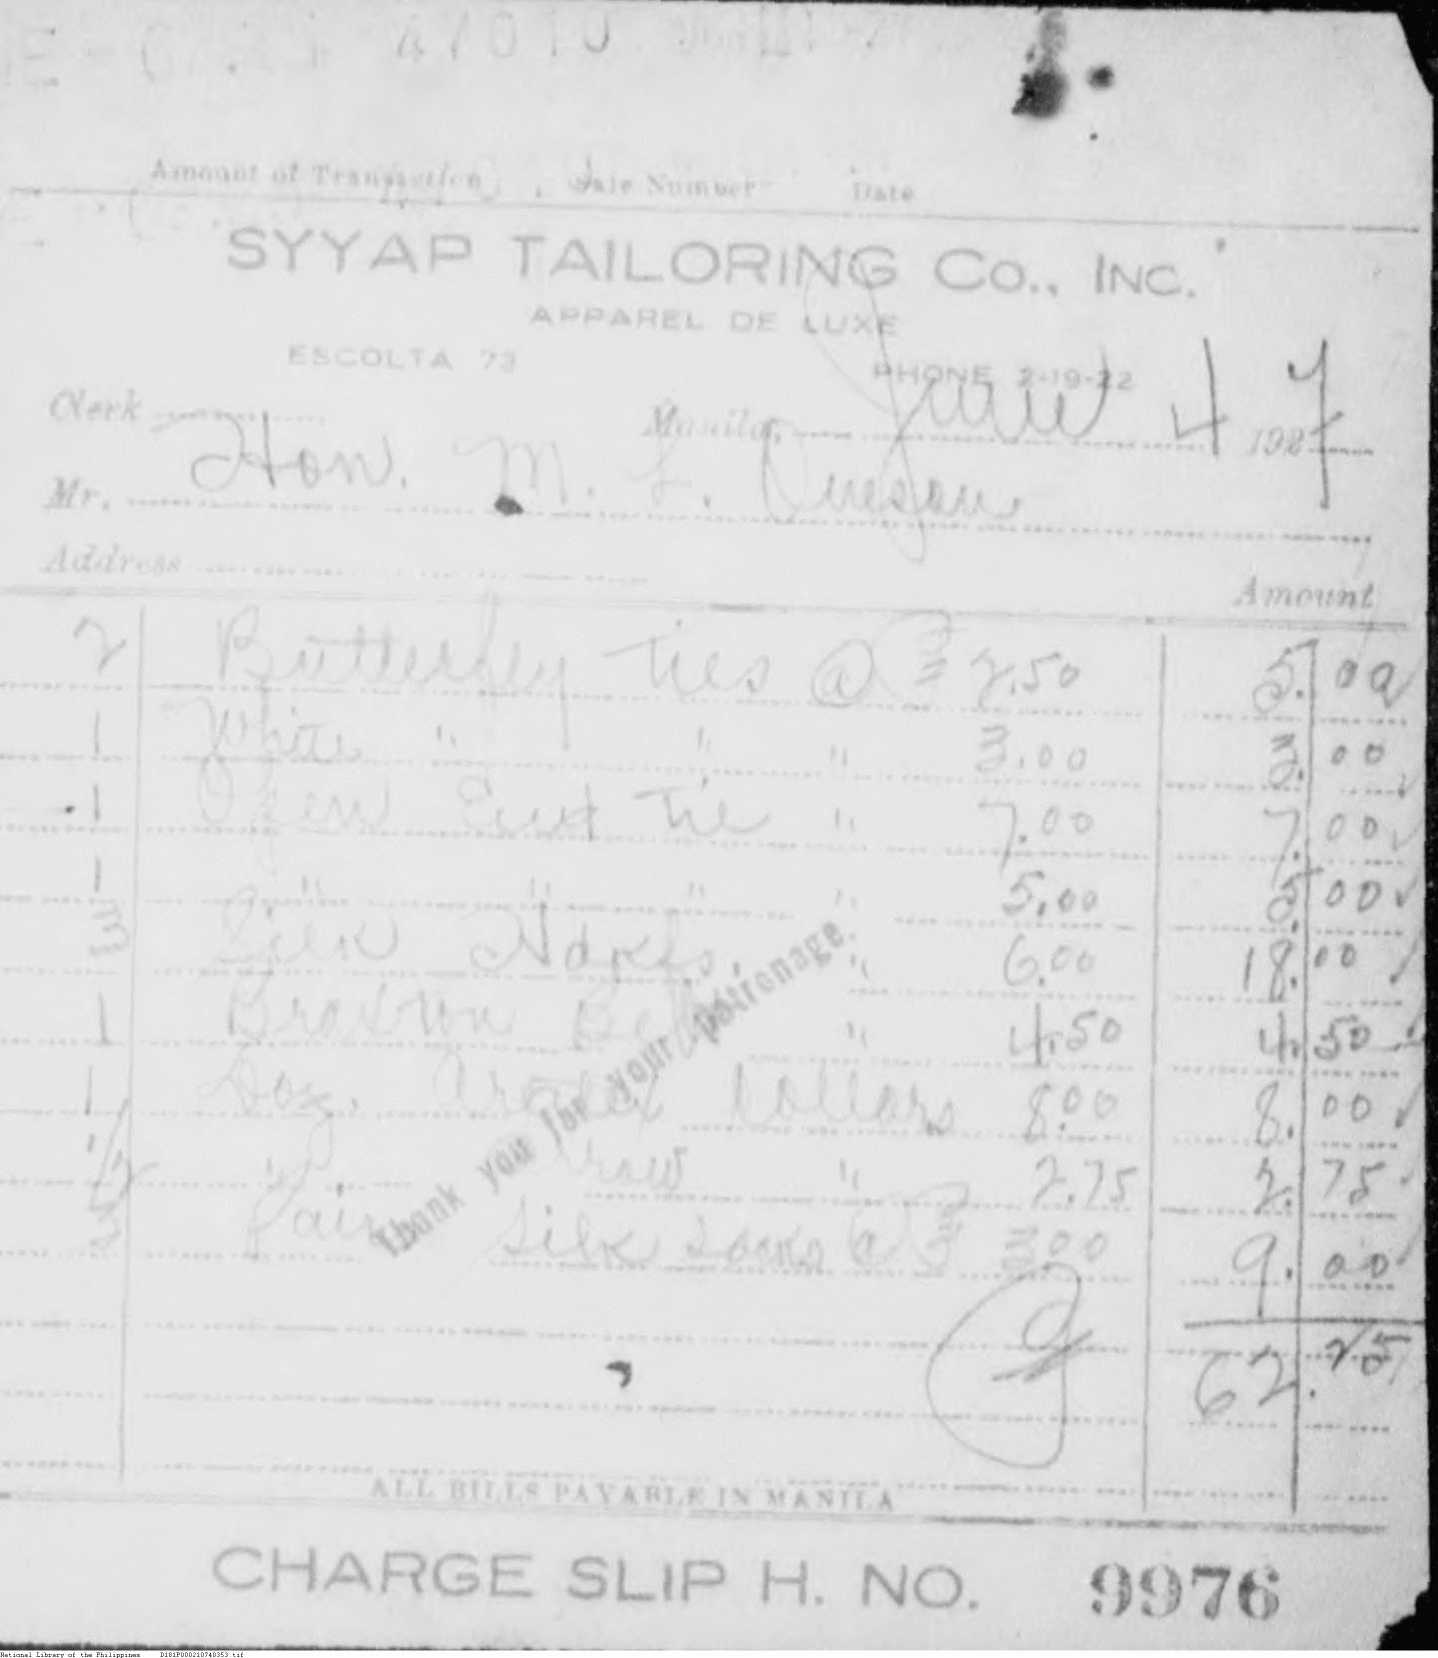 47010
Amount of Transaction Sale Number Date
SYYAP TAILORING CO., INC.
APPAREL DE LUXE
ESCOLTA 73 PHONE 2-19-22
Clerk Manila, June 4 1927
Mr. Hon. M. L. Quezon
Address
Amount
2 Butterfly ties @ ₱ 2.50 5.00
1 White " " " 3.00 3.00
1 Open End tie " 7.00 7.00
1 " " " " 5.00 5.00
3 Silk Hdkfs. " 6.00 18.00
1 Braxton Belt " 4.50 4.50
1 Doz. Arrow Collars 8.00 8.00
1/2 " Arrow " 2.75 2.75
3 Pair Silk socks @ ₱ 3.00 9.00
62.25
Thank you for your patronage.
ALL BILLS PAYABLE IN MANILA
CHARGE SLIP H. NO. 9976
National Library of the Philippines D181P000210740353.tif